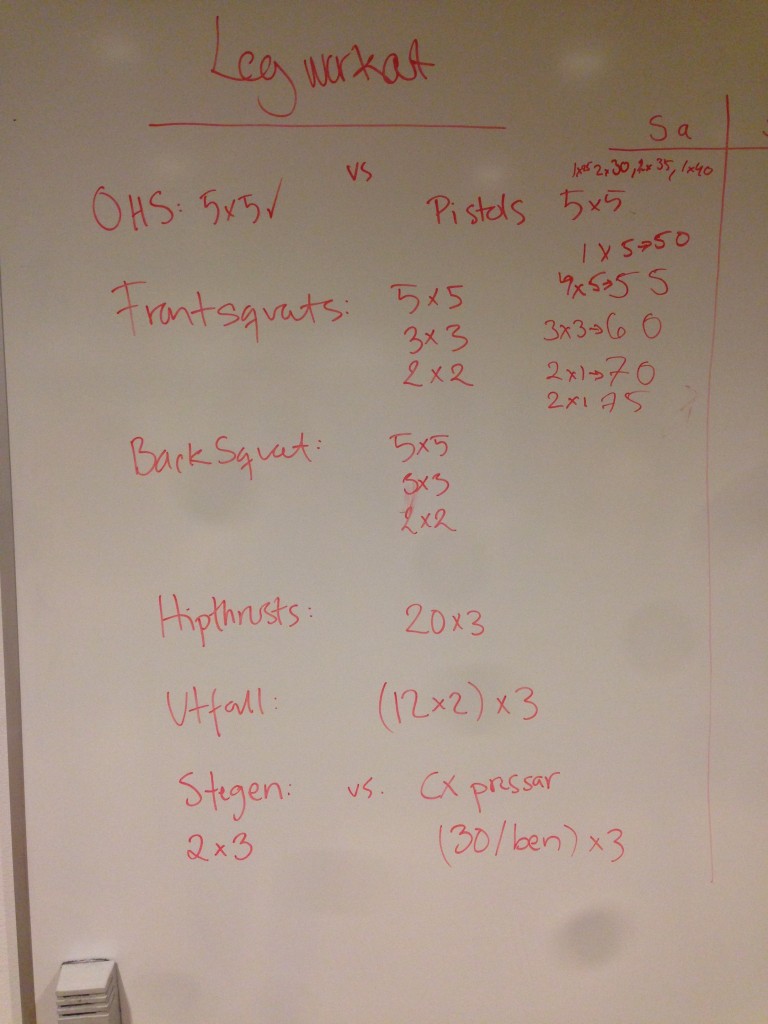 Leg workout
Sa
vs
1x25 2x30, 2x35, 1x40
OHS: 5x5✓ Pistols 5x5
1x5→50
Frontsquats: 5x5 4x5→55
3x3 3x3→60
2x2 2x1→70
2x1 75
Back Squat: 5x5
3x3
2x2
Hipthrusts: 20x3
Utfall: (12x2)x3
Stegen: vs. CX pressar
2x3 (30/ben)x3